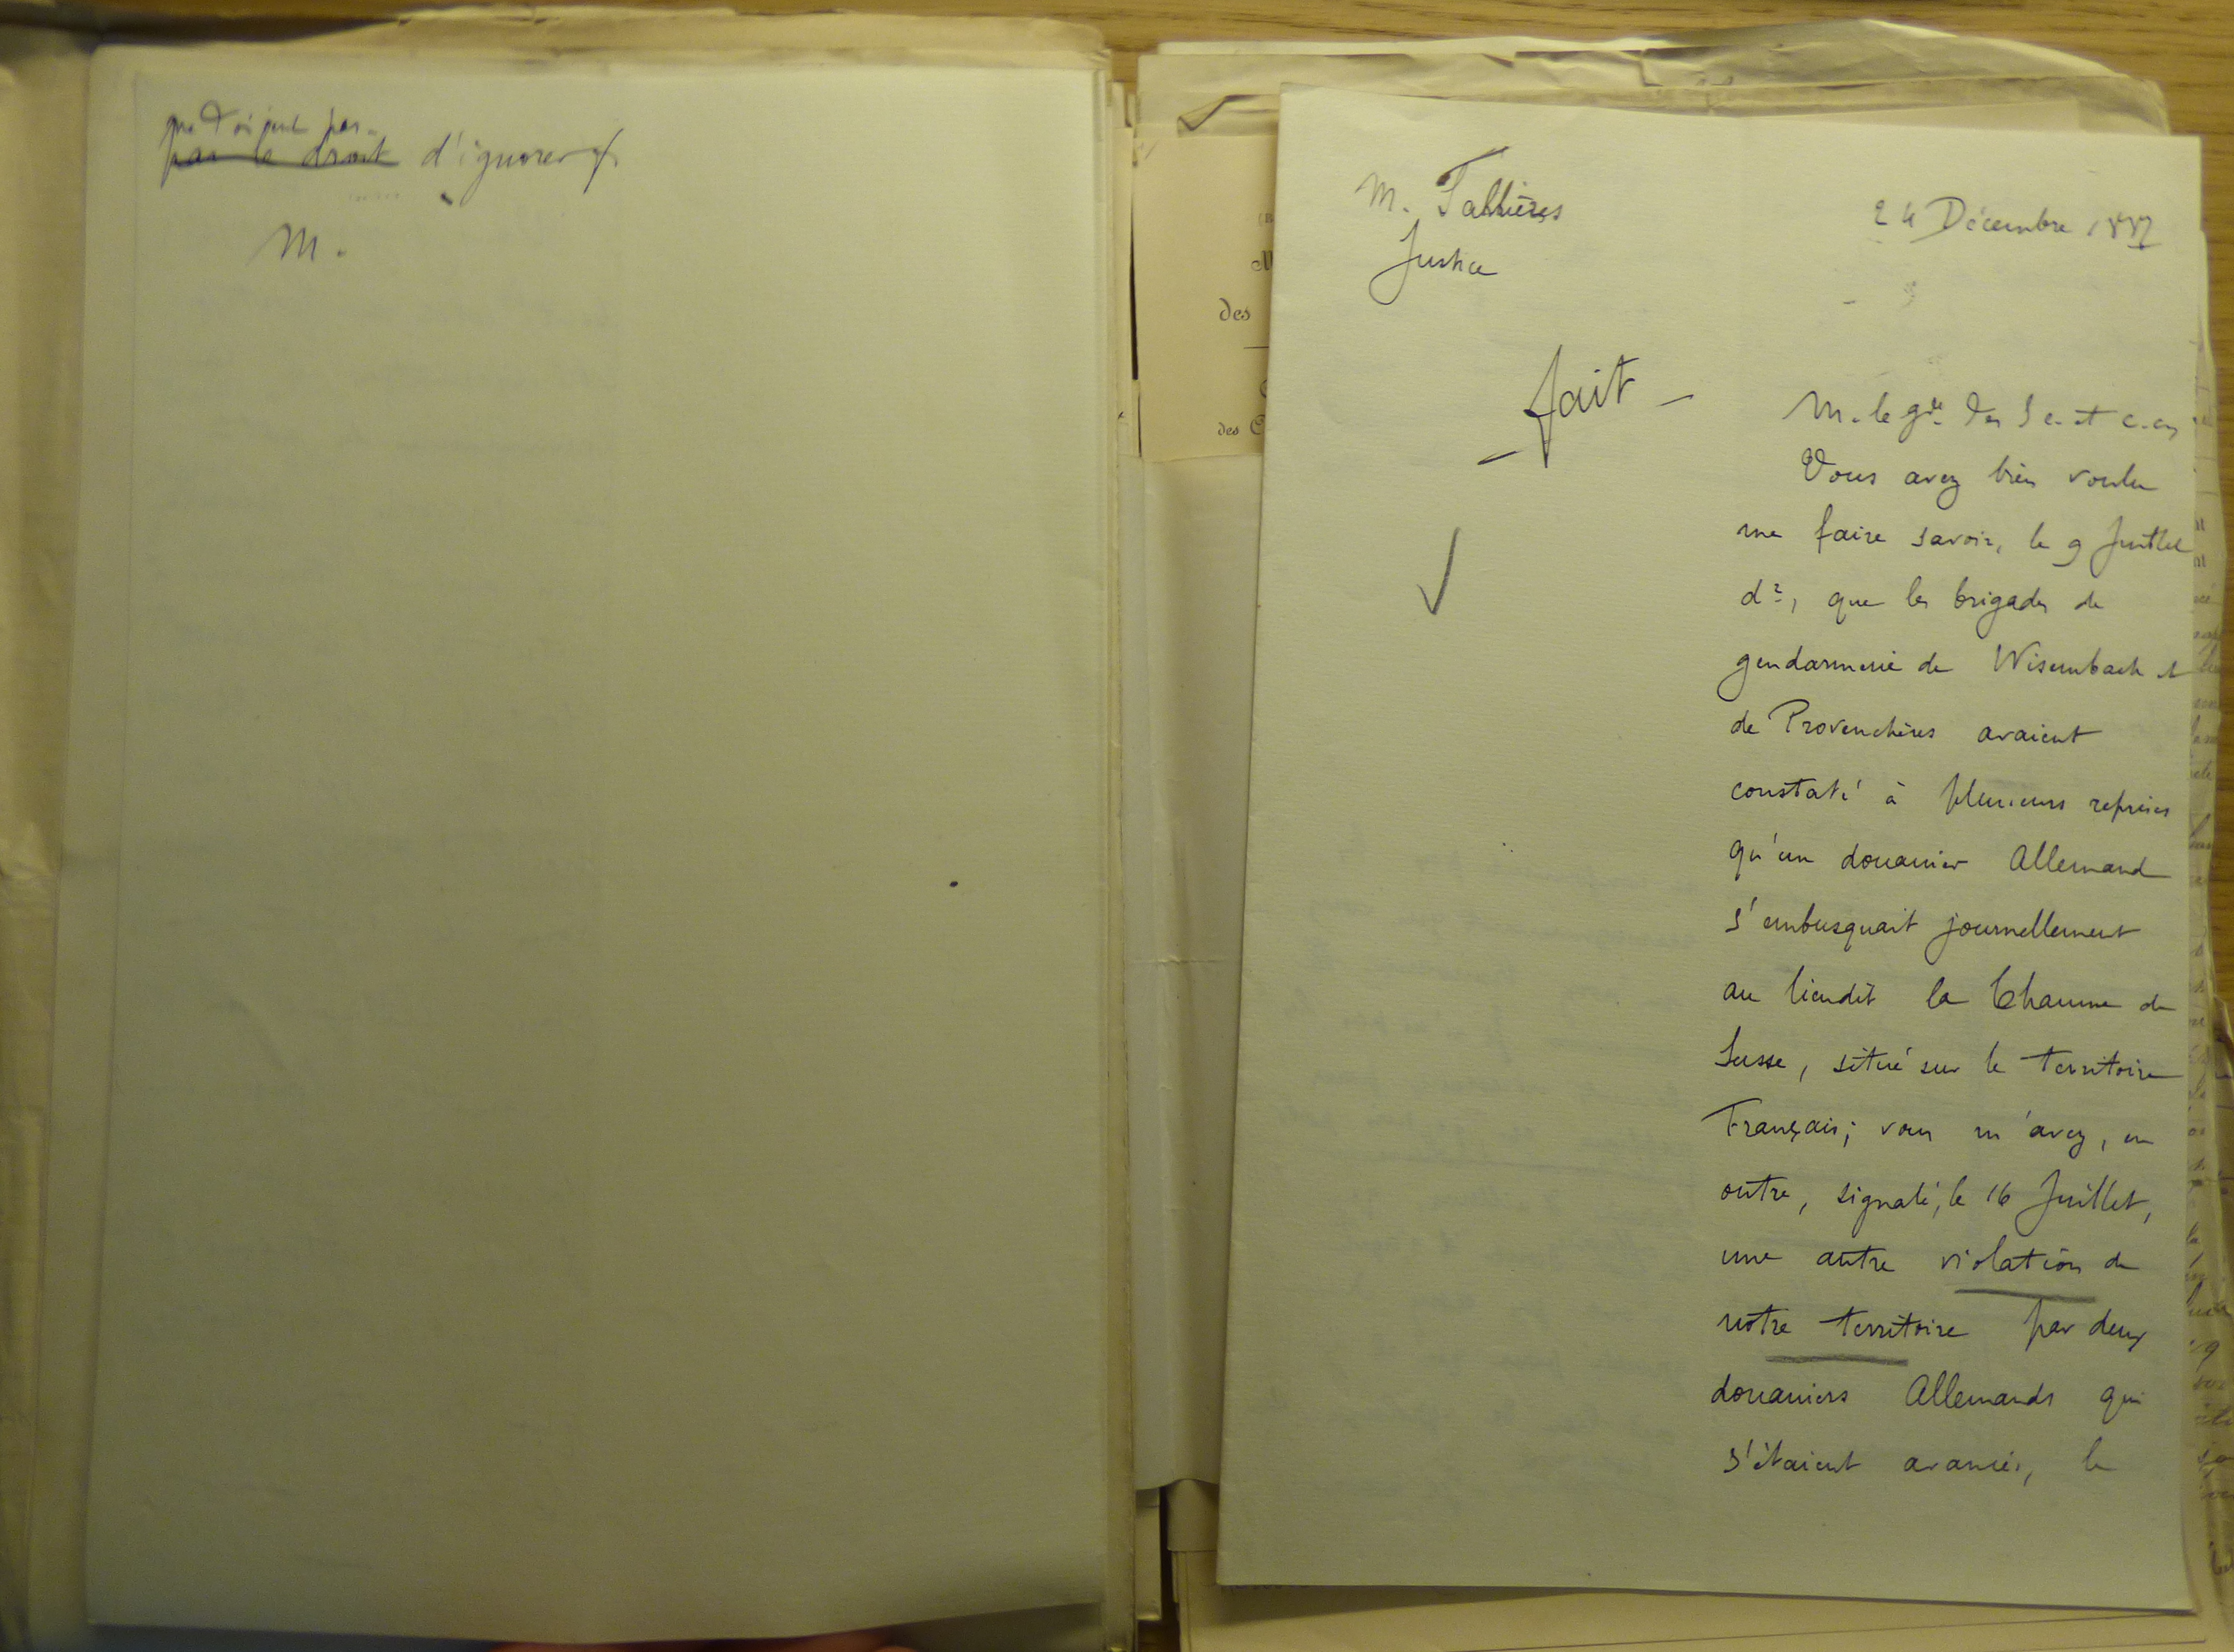 par le droit d'ignorer
M.
des
des C
M. Fallières
Justice
24 Décembre 1887
fait
M. le gde des Sc. et c.
Vous avez bien voulu
me faire savoir, le 9 Juillet
dr, que les brigades de
gendarmerie de Wisembach et
de Provenchères avaient
constaté à plusieurs reprises
qu'un douanier Allemand
s'embusquait journellement
au lieudit la Chaume de
Lusse, situé sur le territoire
Français; vous m'avez, en
outre, signalé, le 16 Juillet,
une autre violation de
notre territoire par deux
douaniers Allemands qui
s'étaient avancés, le